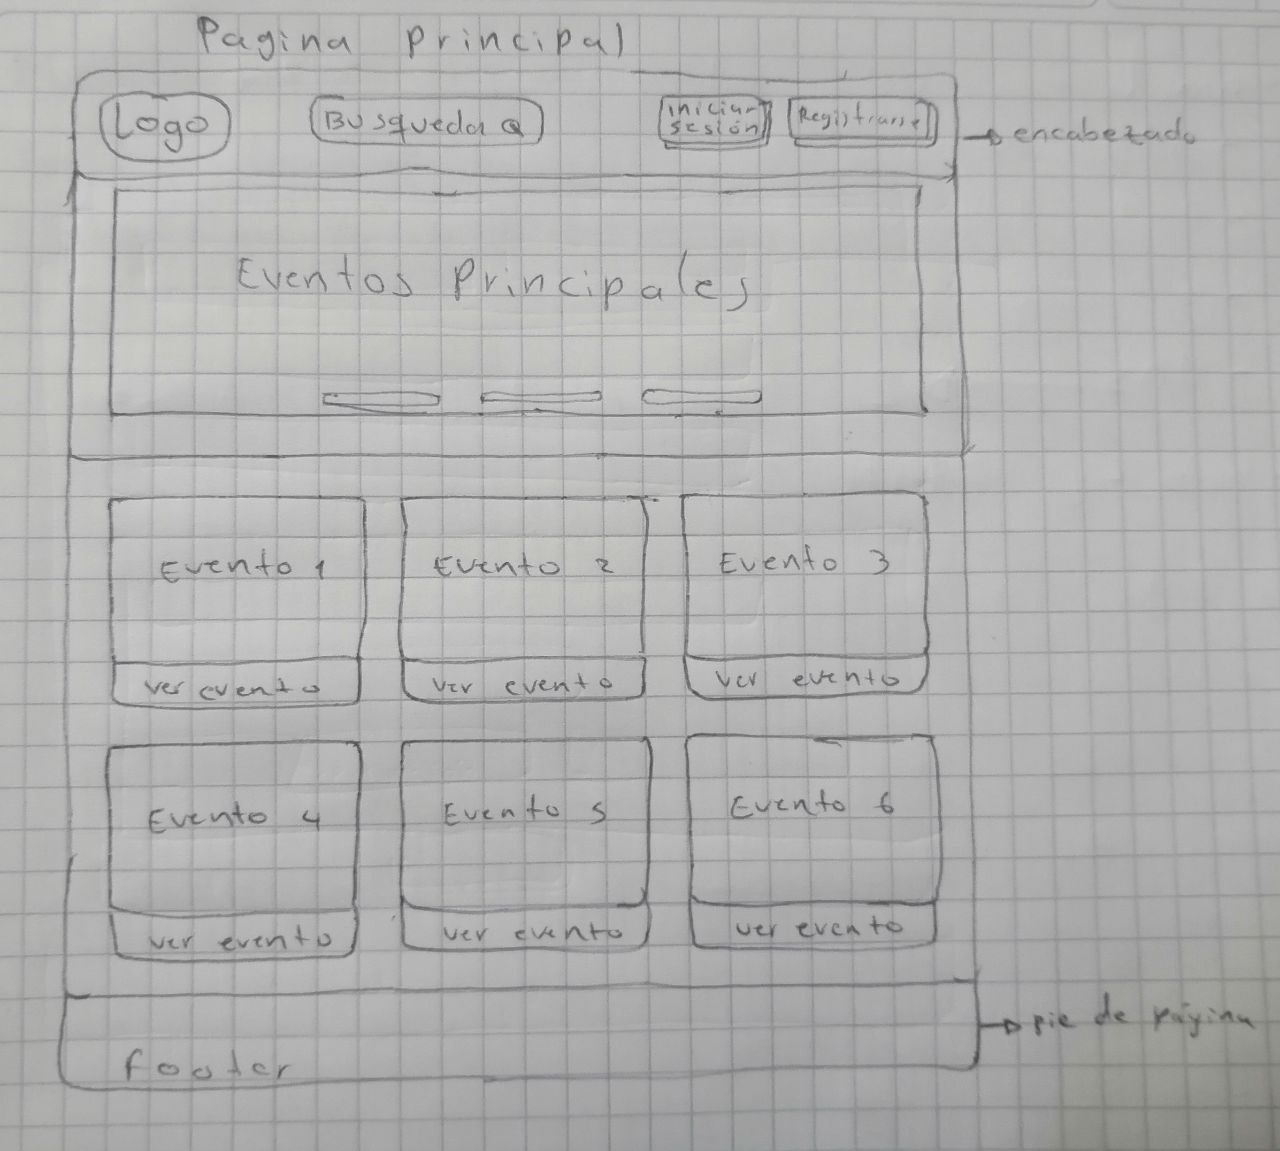 Pagina principal
Logo
Busqueda
iniciar
sesión
Registrarse
encabezado
Eventos Principales
Evento 1
Evento 2
Evento 3
ver evento
ver evento
ver evento
Evento 4
Evento 5
Evento 6
ver evento
ver evento
ver evento
footer
pie de página